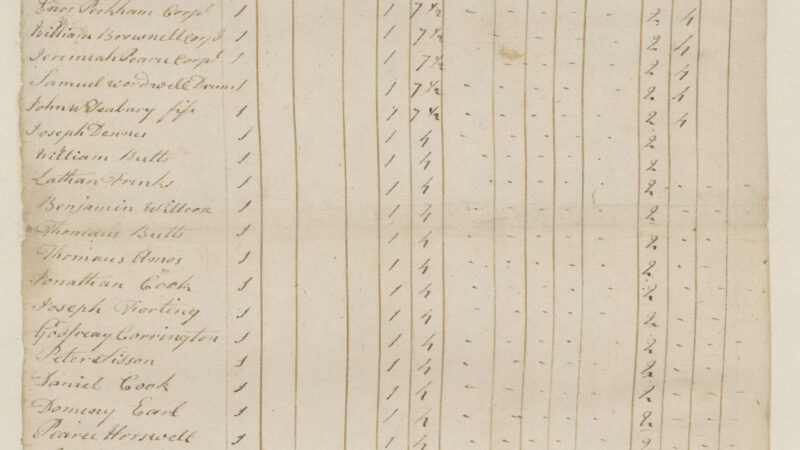 Enos Peckham Corpl 1 1 7 1/2 2 4
William Brownell Corpl 1 1 7 1/2 2 4
Jeremiah Pearce Corpl 1 1 7 1/2 - - - - - 2 4
Samuel Wordwell Drum 1 1 7 1/2 - - - - - 2 4
John W Seabury fife 1 1 7 1/2 - - - - - 2 4
Joseph Dennis 1 1 4 - - - - - 2
William Butts 1 1 4 - - - - - 2
Lathan 1 1 4 - - - - - 2 - - -
Benjamin Willcox 1 1 4 - - - - - 2 - - -
Thomaus Butts 1 1 4 - - - - - 2 - -
Thomaus Amos 1 1 4 - - - - - 2 - - -
Jonathan Cook 1 1 4 - - - - - 2 - - -
Joseph 1 1 4 - - - - - 2 - -
Godfreay Corrington 1 1 4 - - - - - 2 - - -
Peter Sisson 1 1 4 - - - - - 2 - -
Daniel Cook 1 1 4 - - - - - 2 - - -
Domeny Earl 1 1 4 - - - - - 2 - -
Pearce Horswell 1 1 4 - - - - - 2 - -